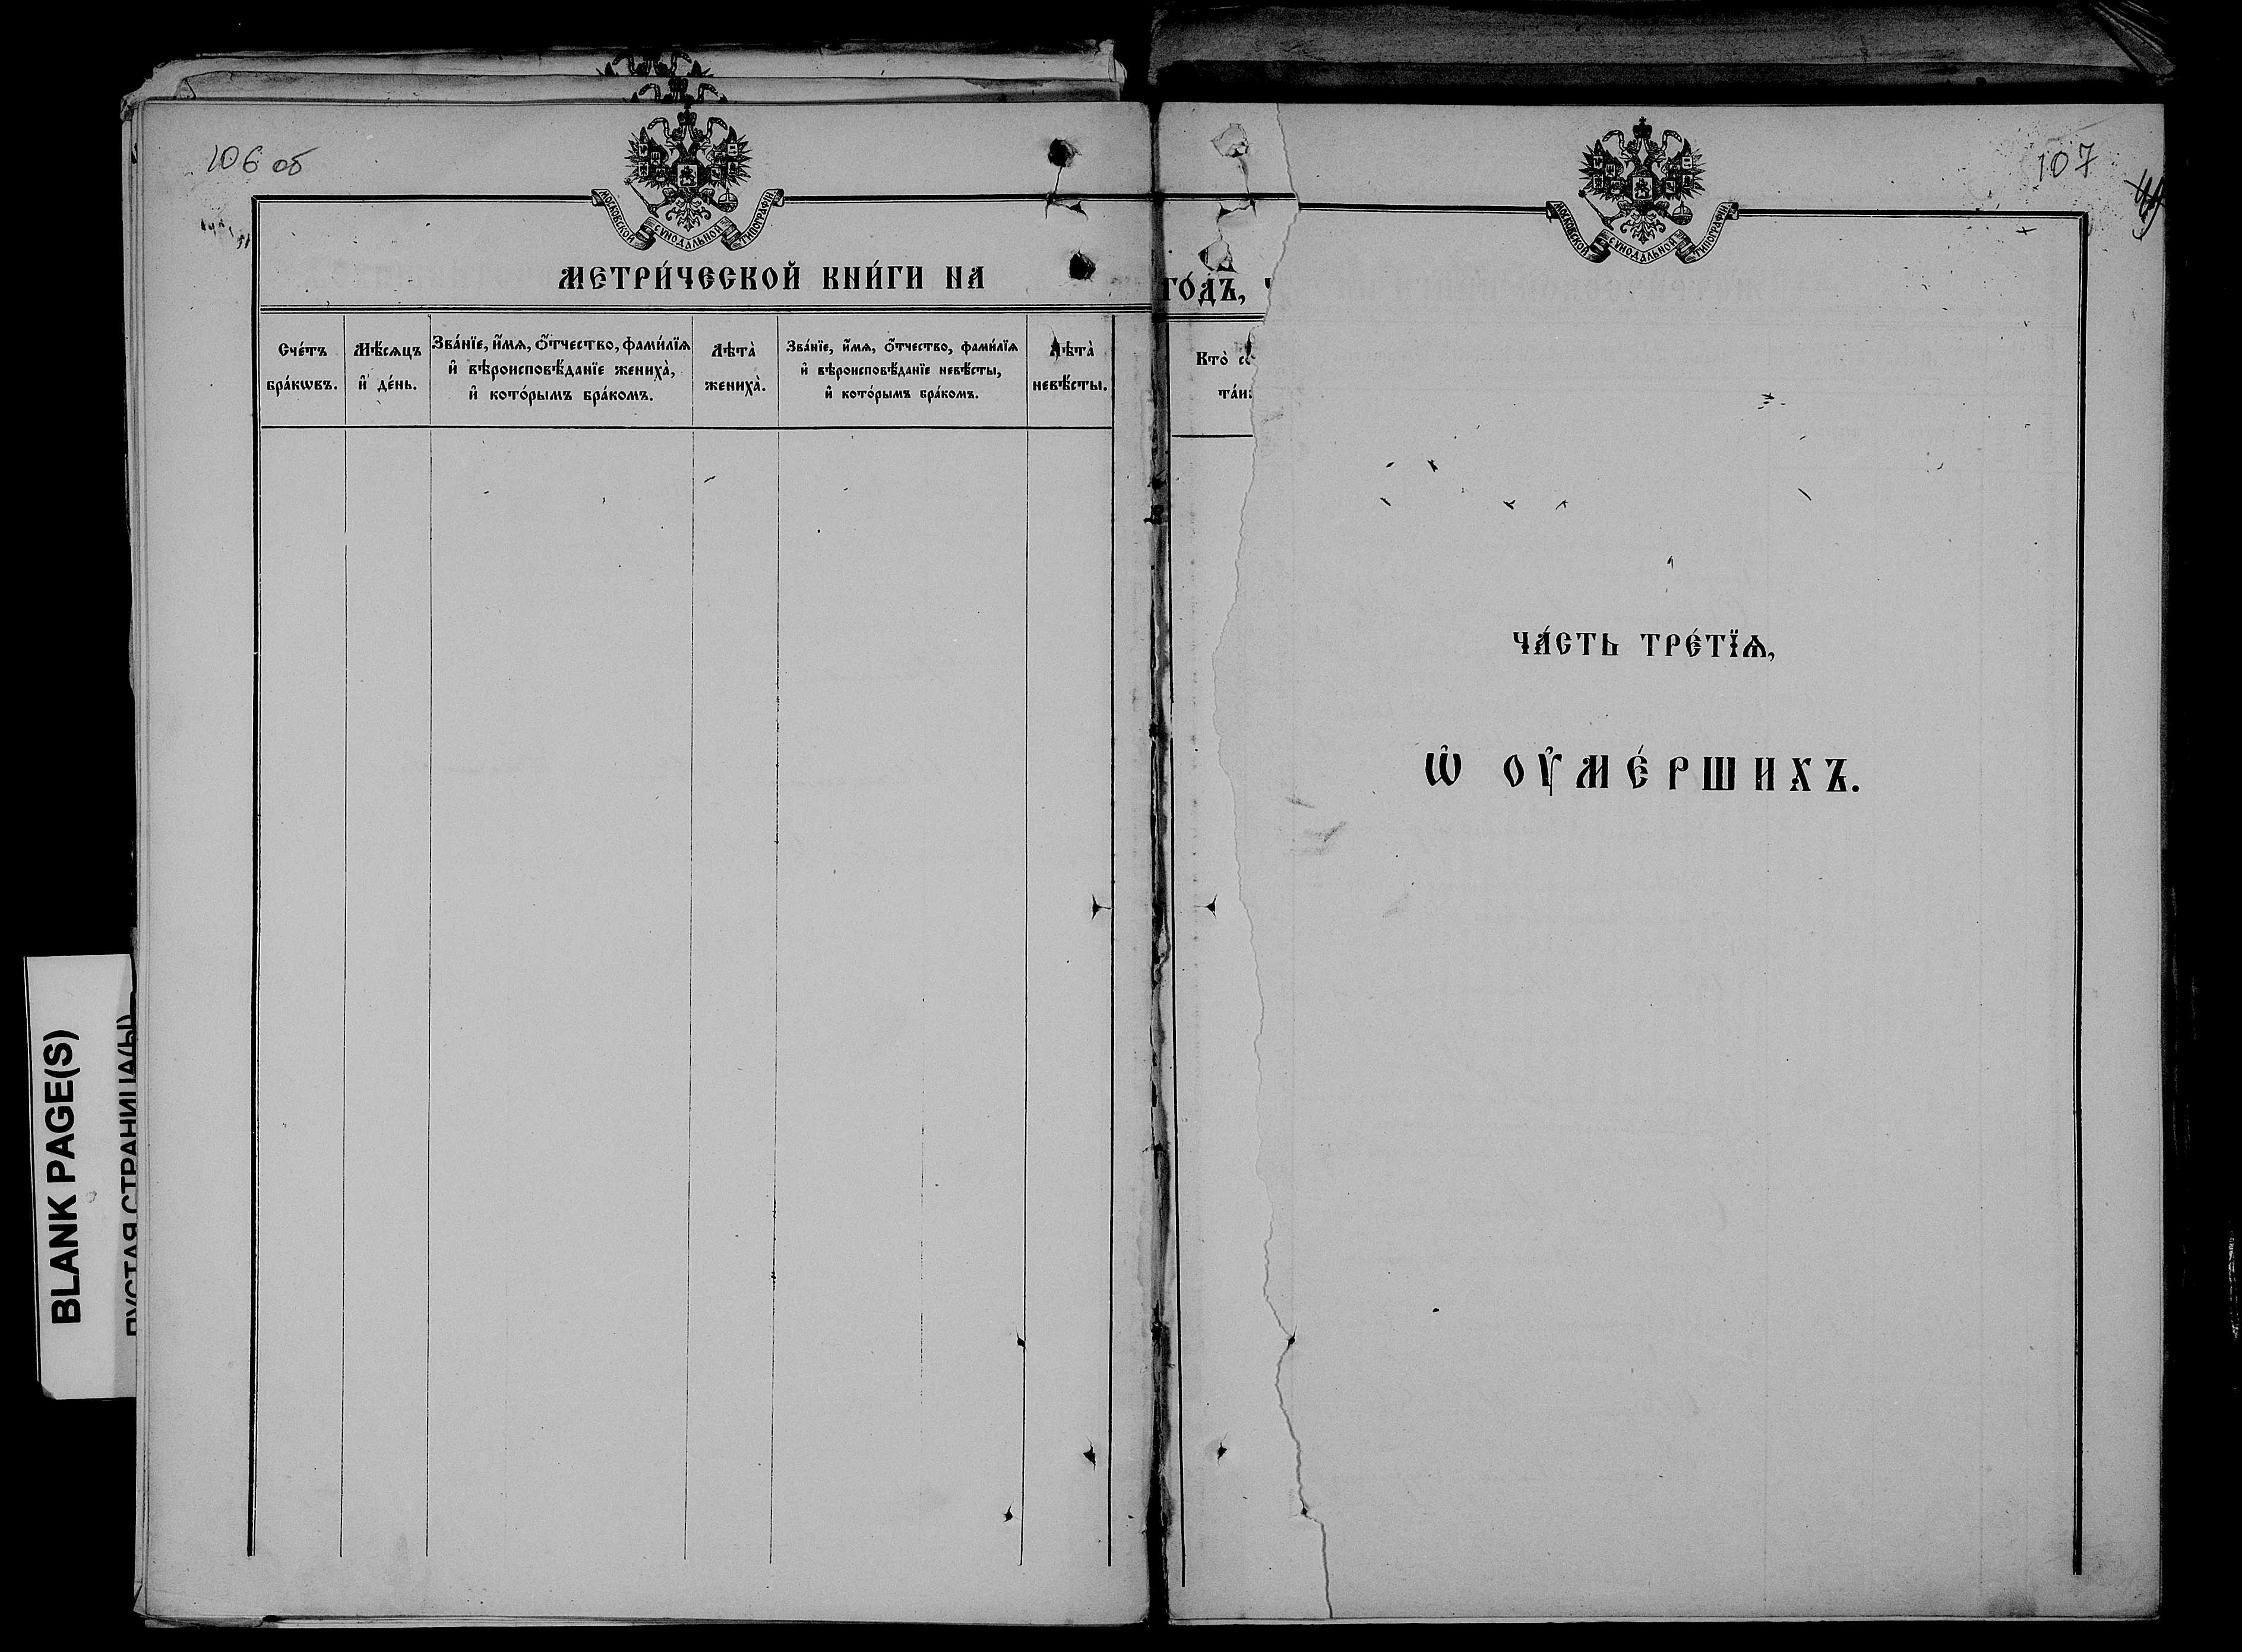 106 об
МОСКОВСКОЙ СѴНОДАЛЬНОЙ ТИПОГРАФІИ.
МЕТРИ́ЧЕСКОЙ КНИ́ГИ НА
Сче́тъ бра́кѡвъ.
Мѣ́сяцъ и҆ де́нь.
Зва́нїе, и҆́мѧ, ѻ҆́тчество, фами́лїѧ
и҆ вѣроисповѣ́данїе жениха̀,
и҆ кото́рымъ бра́комъ.
Лѣта̀ жениха̀.
Зва́нїе, и҆́мѧ, ѻ҆́тчество, фами́лїѧ
и҆ вѣроисповѣ́данїе невѣ́сты,
и҆ кото́рымъ бра́комъ.
Лѣта̀ невѣ́сты.
ГО́ДЪ,
Кто̀
107
МОСКОВСКОЙ СѴНОДАЛЬНОЙ ТИПОГРАФІИ.
ЧА́СТЬ ТРЕ́ТЇѦ,
Ѡ҆ ОУ҆МЕ́РШИХЪ.
BLANK PAGE(S)
ПУСТАЯ СТРАНИЦА(Ы)